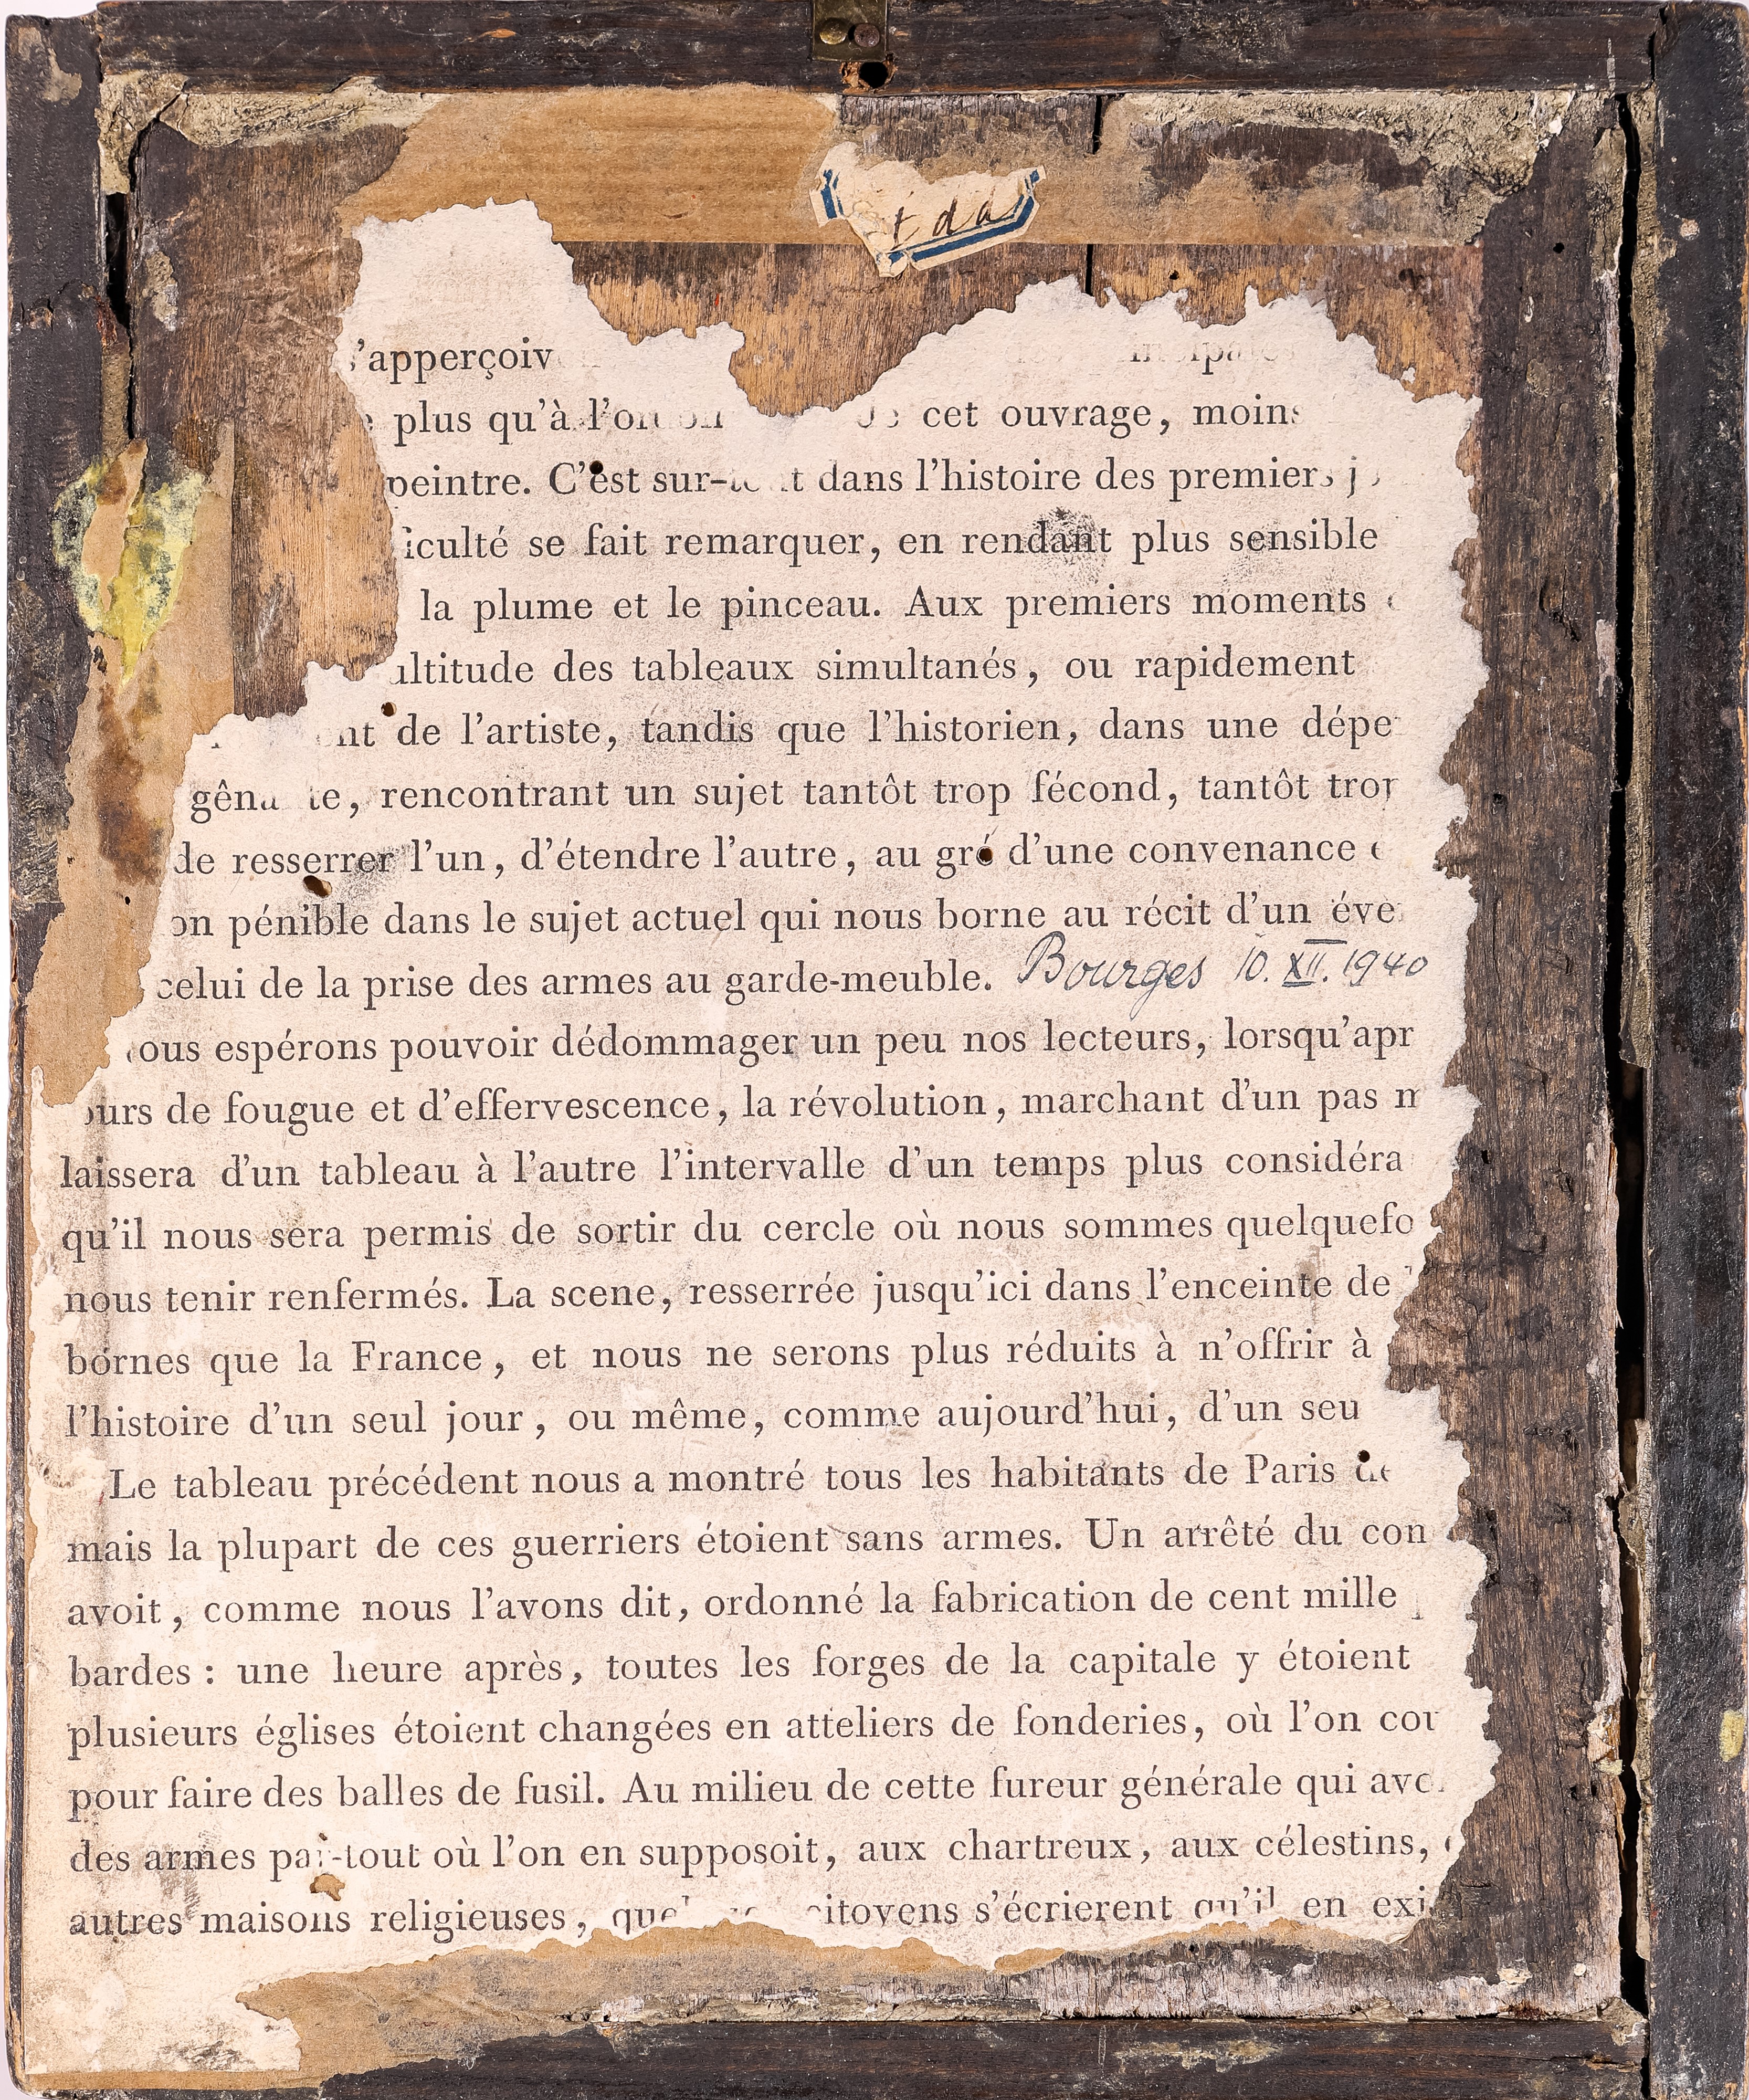 t da
'apperçoiv
plus qu'à cet ouvrage, moins
peintre. C'est sur- dans l'histoire des premiers
iculté se fait remarquer, en rendant plus sensible
la plume et le pinceau. Aux premiers moments
ultitude des tableaux simultanés, ou rapidement
nt de l'artiste, tandis que l'historien, dans une dépe
rencontrant un sujet tantôt trop fécond, tantôt trop
de resserrer l'un, d'étendre l'autre, au gré d'une convenance
on pénible dans le sujet actuel qui nous borne au récit d'un éve
celui de la prise des armes au garde-meuble. Bourges 10. XII. 1940
ous espérons pouvoir dédommager un peu nos lecteurs, lorsqu'apr
ours de fougue et d'effervescence, la révolution, marchant d'un pas m
laissera d'un tableau à l'autre l'intervalle d'un temps plus considéra
qu'il nous sera permis de sortir du cercle où nous sommes quelquefo
nous tenir renfermés. La scene, resserrée jusqu'ici dans l'enceinte de
bornes que la France, et nous ne serons plus réduits à n'offrir à
l'histoire d'un seul jour, ou même, comme aujourd'hui, d'un seu
Le tableau précédent nous a montré tous les habitants de Paris
mais la plupart de ces guerriers étoient sans armes. Un arrêté du com
avoit, comme nous l'avons dit, ordonné la fabrication de cent mille
bardes : une heure après, toutes les forges de la capitale y étoient
plusieurs églises étoient changées en atteliers de fonderies, où l'on cou
pour faire des balles de fusil. Au milieu de cette fureur générale qui avo
des armes par-tout où l'on en supposoit, aux chartreux, aux célestins,
autres maisons religieuses, citoyens s'écrierent qu'il en exi